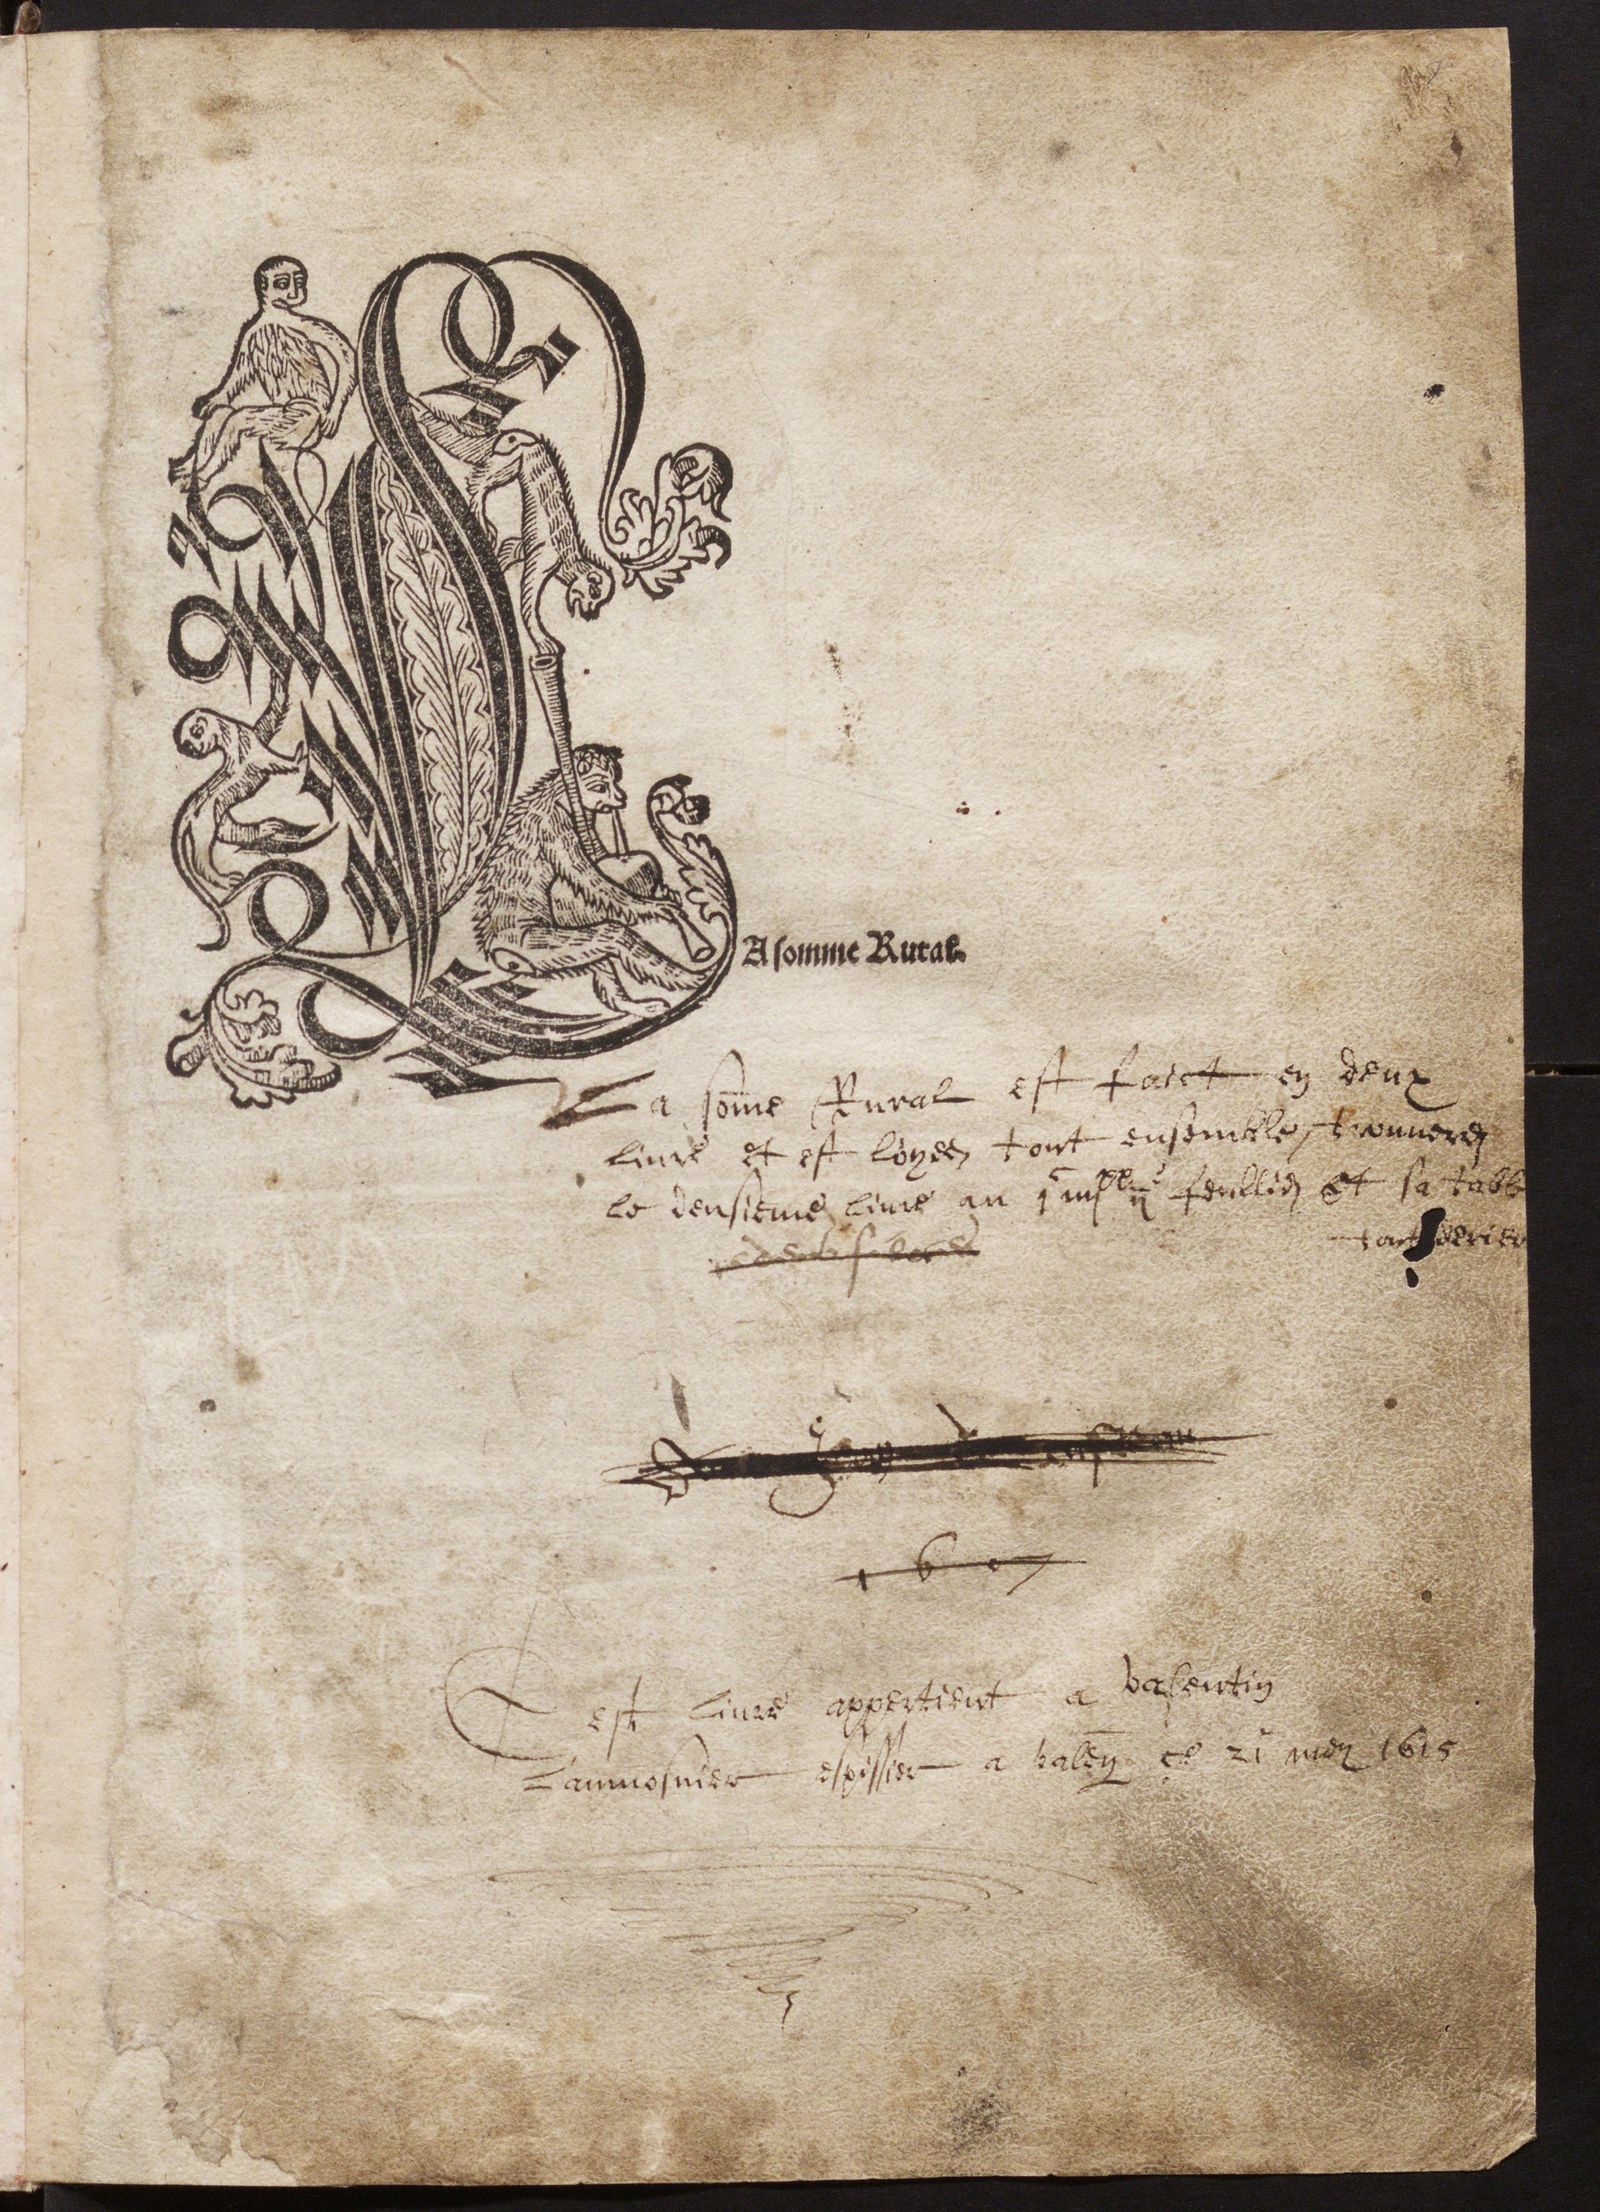 LA somme Rural.
La some Rural est faict en deux
livre et est loyez tout ensemble, trouverez
le deusieme livre au feullies et sa table
tout derier
1607
Cest livre appertient a valentin
Laumosnier espissier a valen. ce 21 mey 1615